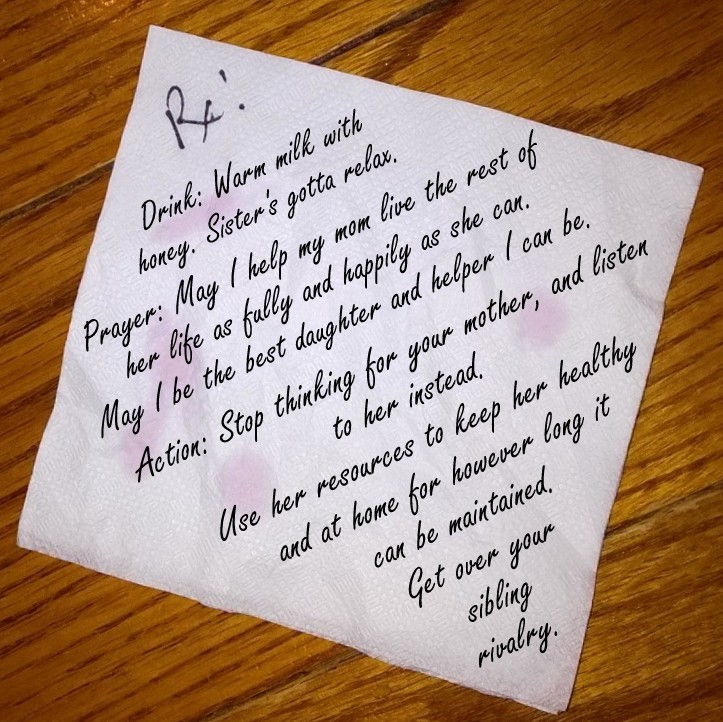 Rx!
Drink: Warm milk with
honey. Sister's gotta relax.
Prayer: May I help my mom live the rest of
her life as fully and happily as she can.
May I be the best daughter and helper I can be.
Action: Stop thinking for your mother, and listen
to her instead.
Use her resources to keep her healthy
and at home for however long it
can be maintained.
Get over your
sibling
rivalry.